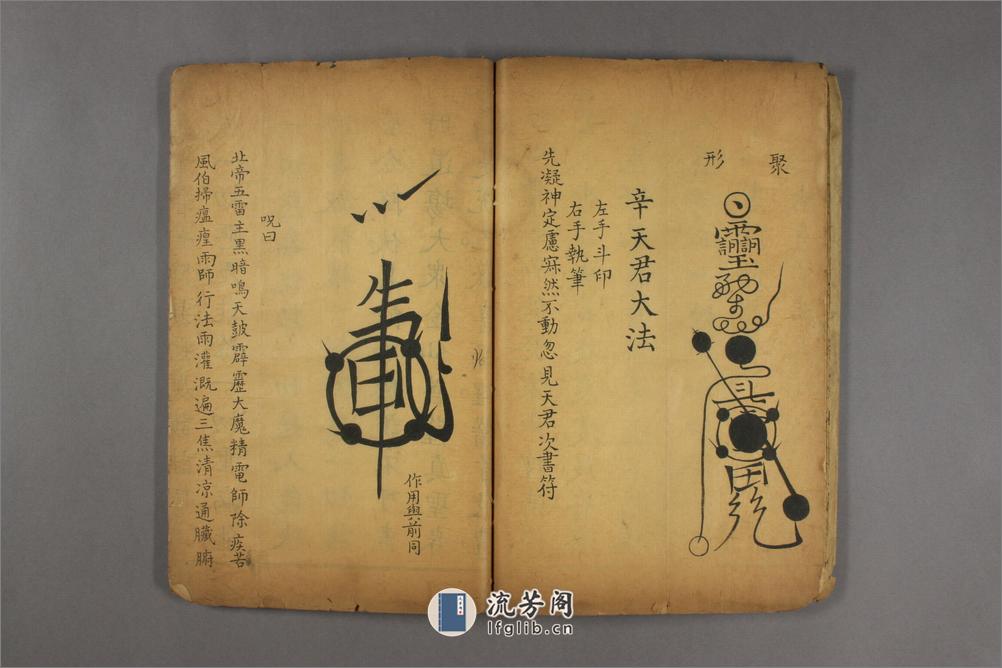 聚形
辛天君大法
左手斗印
右手執筆
先凝神定慮寂然不動忽見天君次書符
作用與前同
呪曰
北帝五雷主黑暗鳴天皷霹靂大魔精電師除疾若
風伯掃瘟瘽雨師行法雨灌溉遍三焦清凉通臟腑
流芳阁
lfglib.cn